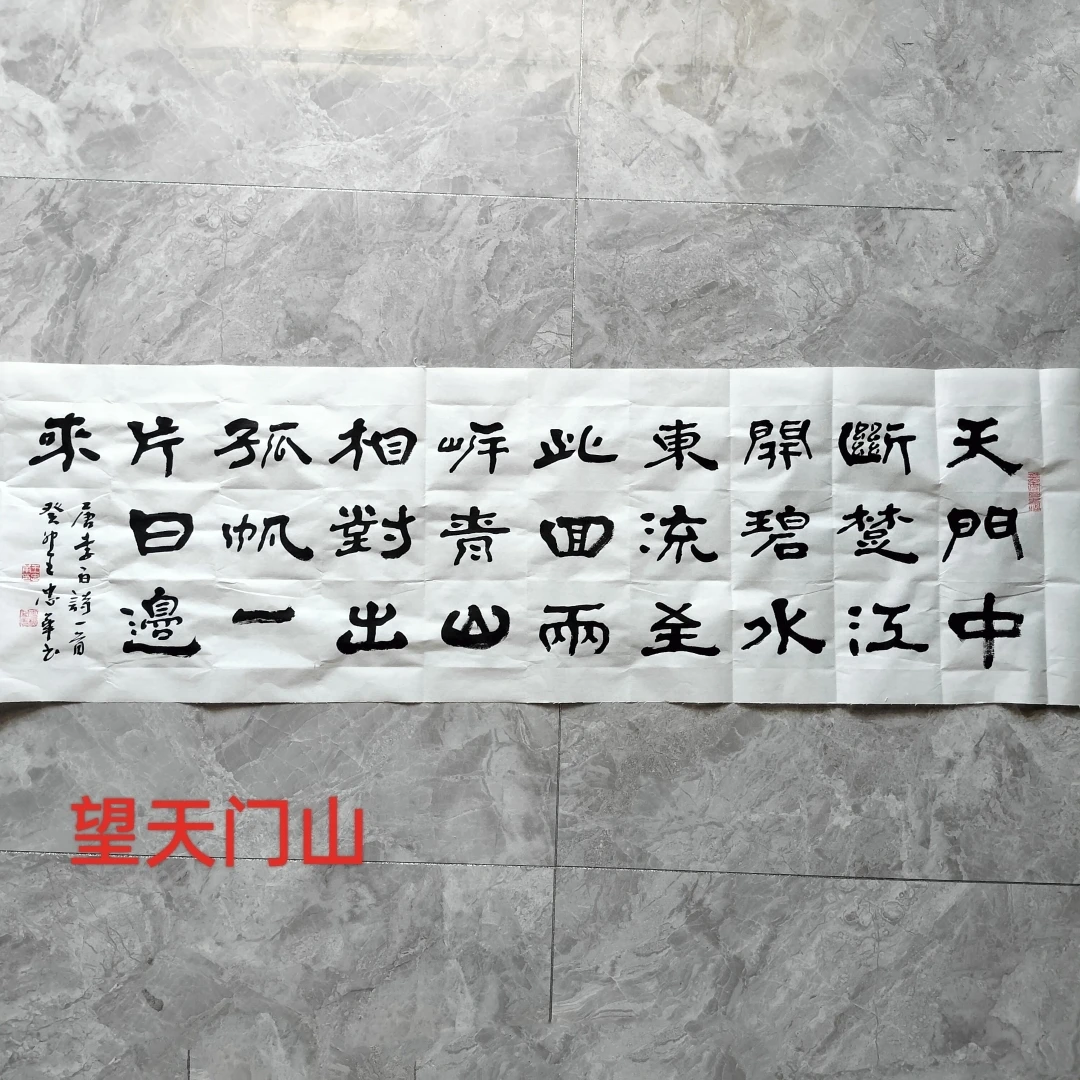 天門中
斷楚江
開碧水
東流至
此回兩
岸青山
相對出
孤帆一
片日邊
來
唐李白詩一首
癸卯王忠華书
望天门山